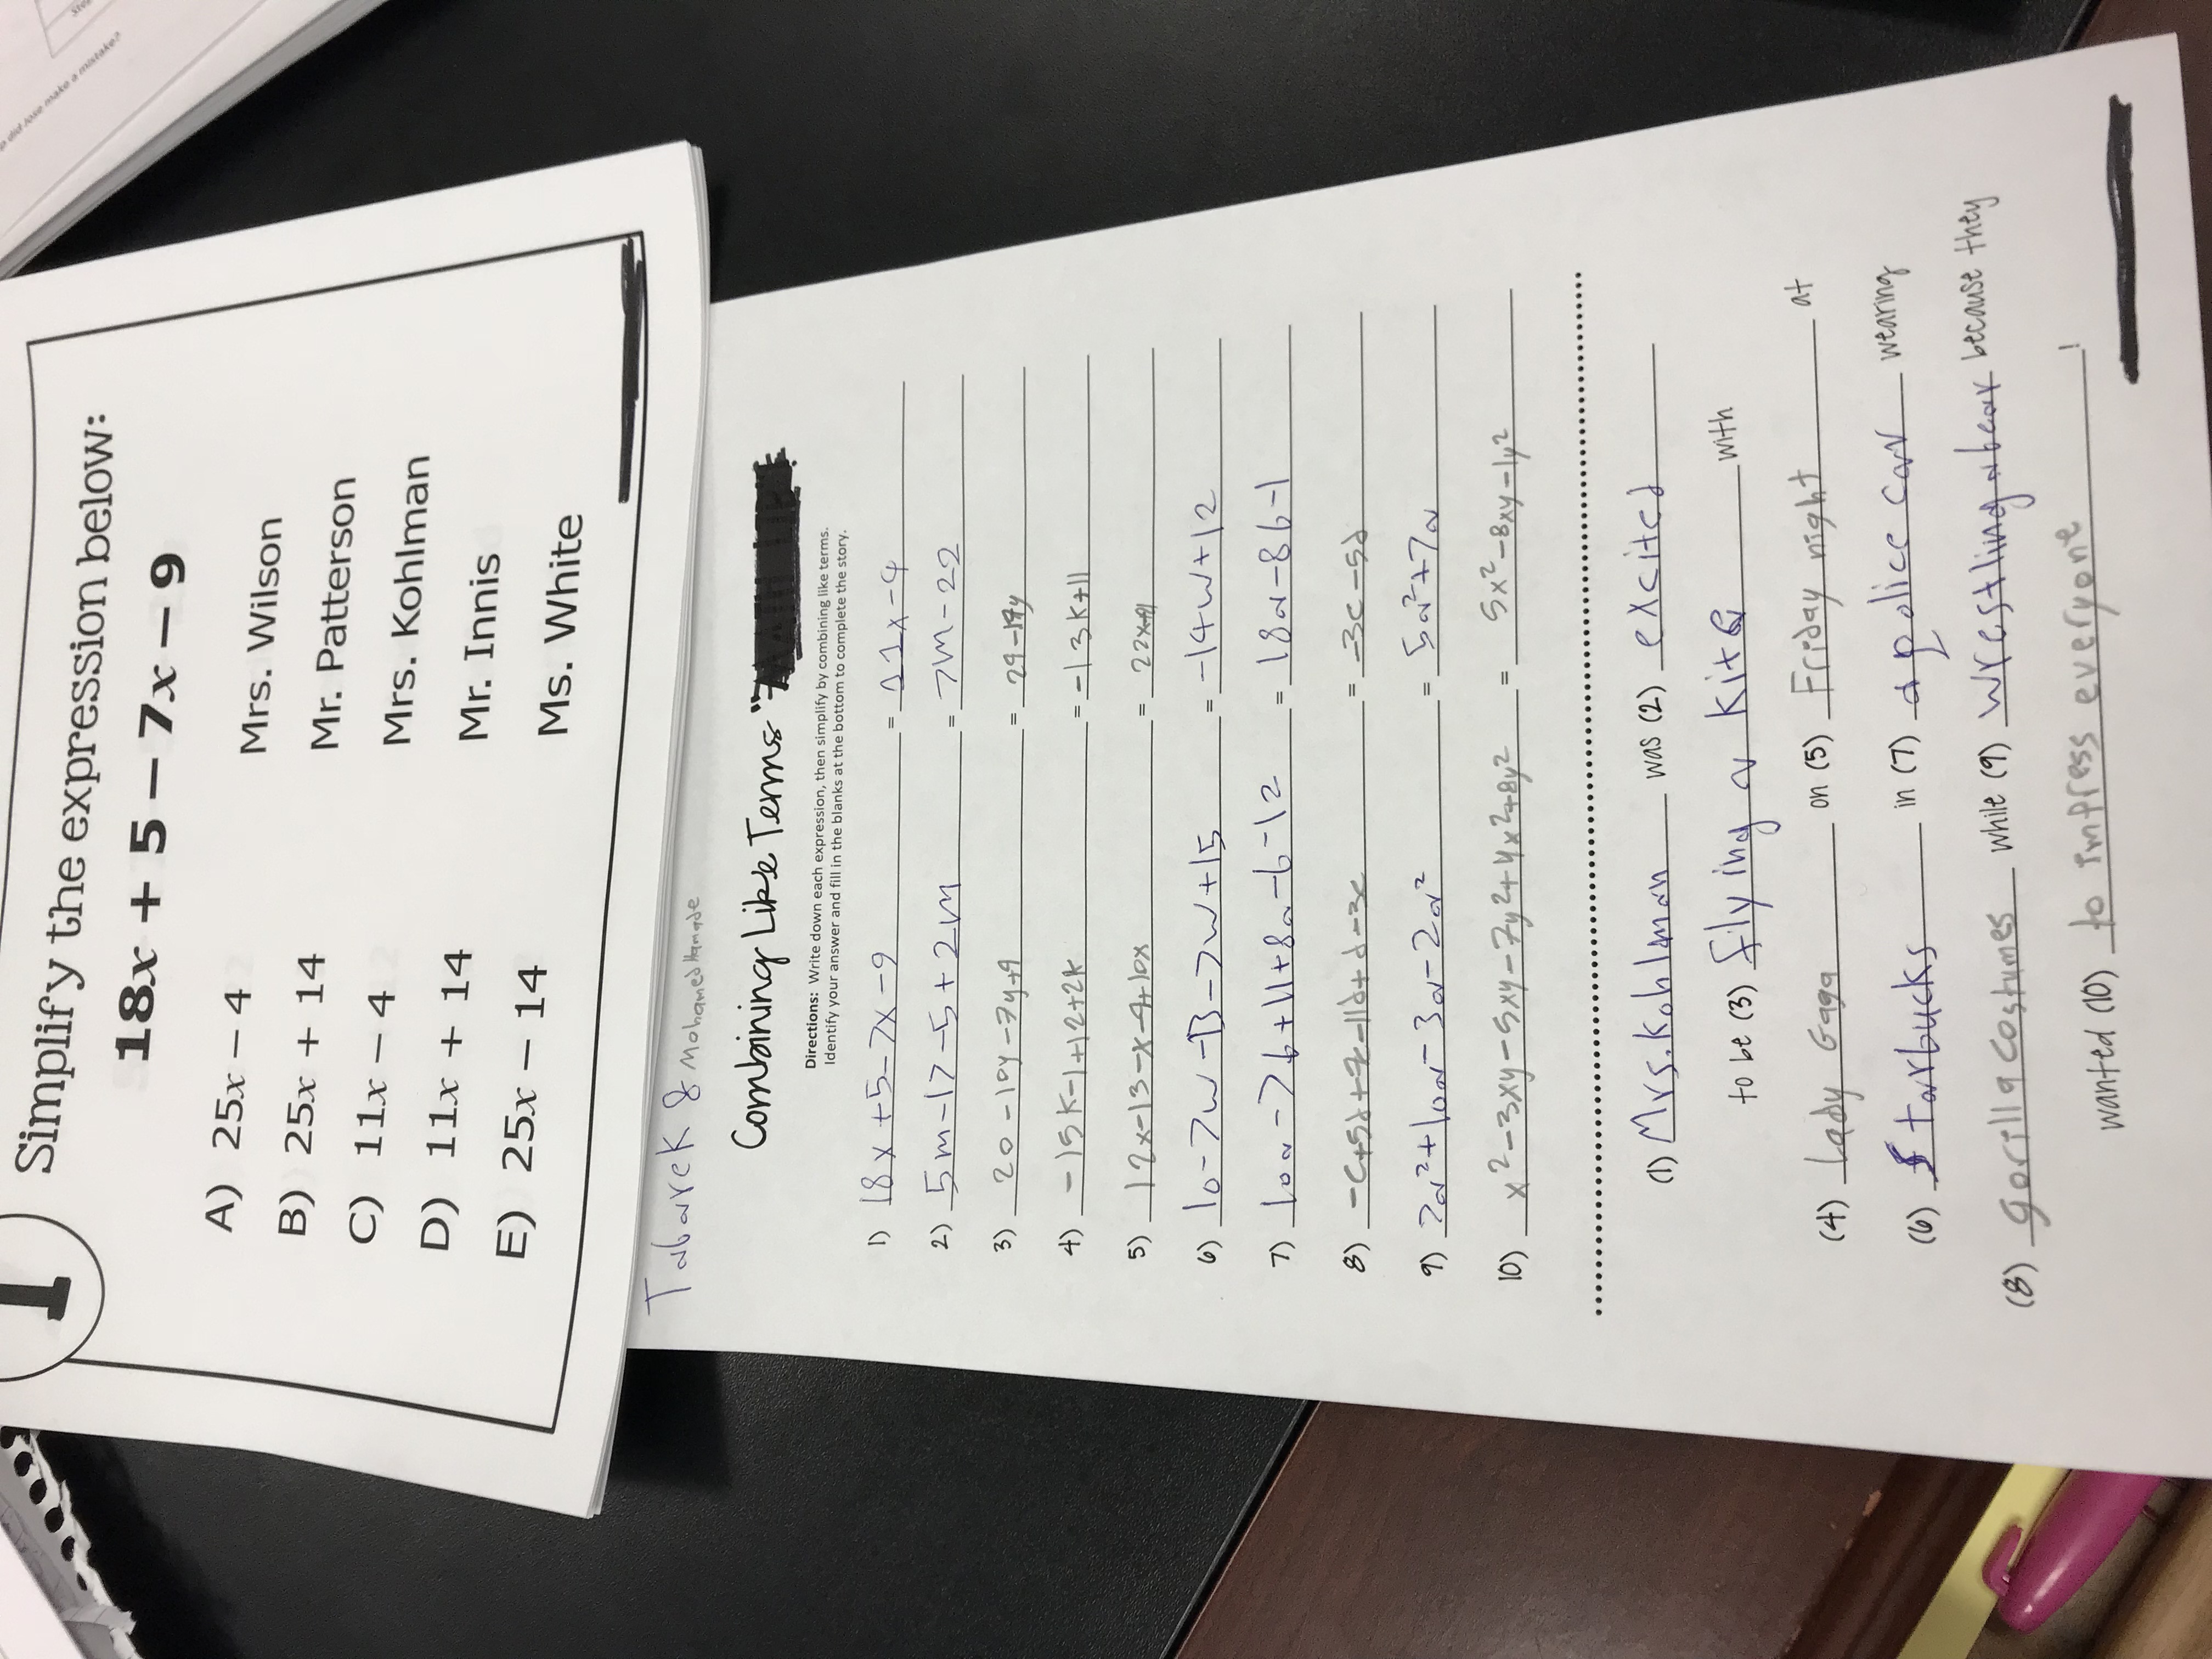 did Jose make a mistake?
1 Simplify the expression below:
18x + 5 – 7x – 9
A) 25x – 4 Mrs. Wilson
B) 25x + 14 Mr. Patterson
C) 11x – 4 Mrs. Kohlman
D) 11x + 14 Mr. Innis
E) 25x – 14 Ms. White
Tabarek & Mohamed
Combining Like Terms "
Directions: Write down each expression, then simplify by combining like terms.
Identify your answer and fill in the blanks at the bottom to complete the story.
1) 18x+5-7x-9 = 11x-4
2) 5m-17-5+2m = 7m-22
3) 20-10y-7y+9 = 29-17y
4) -15k-1+12+2k = -13k+11
5) 12x-13-x-4+10x =
6) 10-7w-13-7w+15 = -14w+12
7) 10a-7b+11+8a-b-12 = 18a-8b-1
8) = -3c-5d
9) 7a²+10a-3a-2a² = 5a²+7a
10) x²-3xy-5xy-7y²+4x²+8y² = 5x²-8xy-1y²
(1) Mrs.Kohlman was (2) excited
to be (3) flying a kite with
(4) lady Gaga on (5) Friday night at
(6) starbucks in (7) a police car wearing
(8) gorilla costumes while (9) wrestling a bear because they
wanted (10) to impress everyone !